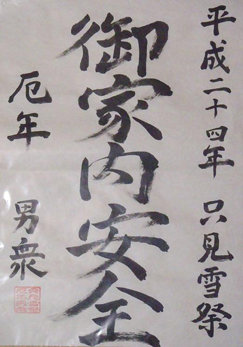 平成二十四年 只見雪祭
御家内安全
厄年 男衆